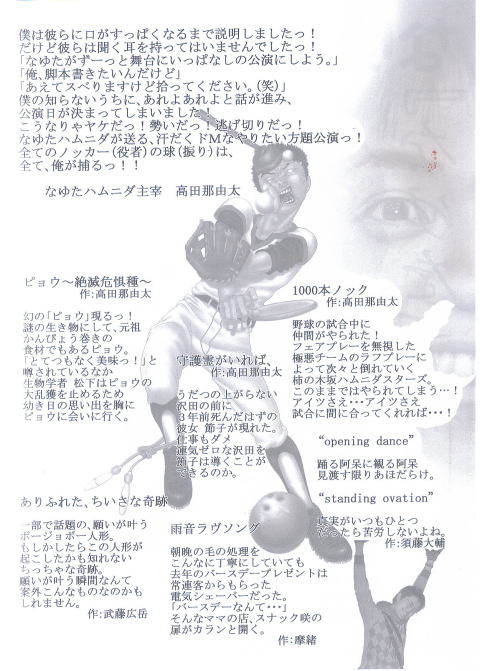 僕は彼らに口がすっぱくなるまで説明しましたっ！
だけど彼らは聞く耳を持ってはいませんでしたっ！
「なゆたがずーっと舞台にいっぱなしの公演にしよう。」
「俺、脚本書きたいんだけど」
「あえてスベりますけど拾ってください。（笑）」
僕の知らないうちに、あれよあれよと話が進み、
公演日が決まってしまいました！
こうなりゃヤケだっ！勢いだっ！逃げ切りだっ！
なゆたハムニダが送る、汗だくドMなやりたい方題公演っ！
全てのノッカー（役者）の球（振り）は、
全て、俺が捕るっ！！
なゆたハムニダ主宰　高田那由太
ピョウ～絶滅危惧種～
作：高田那由太
幻の「ピョウ」現るっ！
謎の生き物にして、元祖
かんぴょう巻きの
食材でもあるピョウ。
「とてつもなく美味っ！」と
噂されているなか
生物学者 松下はピョウの
大乱獲を止めるため
幼き日の思い出を胸に
ピョウに会いに行く。
守護霊がいれば、
作：高田那由太
うだつの上がらない
沢田の前に
３年前死んだはずの
彼女 節子が現れた。
仕事もダメ
運気ゼロな沢田を
節子は導くことが
できるのか。
1000本ノック
作：高田那由太
野球の試合中に
仲間がやられた！
フェアプレーを無視した
極悪チームのラフプレーに
よって次々と倒れていく
柿の木坂ハムニダスターズ。
このままではやられてしまう…！
アイツさえ・・・アイツさえ
試合に間に合ってくれれば・・・！
“opening dance”
踊る阿呆に観る阿呆
見渡す限りあほだらけ。
“standing ovation”
真実がいつもひとつ
だったら苦労しないよね。
作：須藤大輔
ありふれた、ちいさな奇跡
一部で話題の、願いが叶う
ボージョボー人形。
もしかしたらこの人形が
起こしたかも知れない
ちっちゃな奇跡。
願いが叶う瞬間なんて
案外こんなものなのかも
しれません。
作：武藤広岳
雨音ラヴソング
朝晩の毛の処理を
こんなに丁寧にしていても
去年のバースデープレゼントは
常連客からもらった
電気シェーバーだった。
「バースデーなんて・・・」
そんなママの店、スナック咲の
扉がカランと開く。
作：摩緒